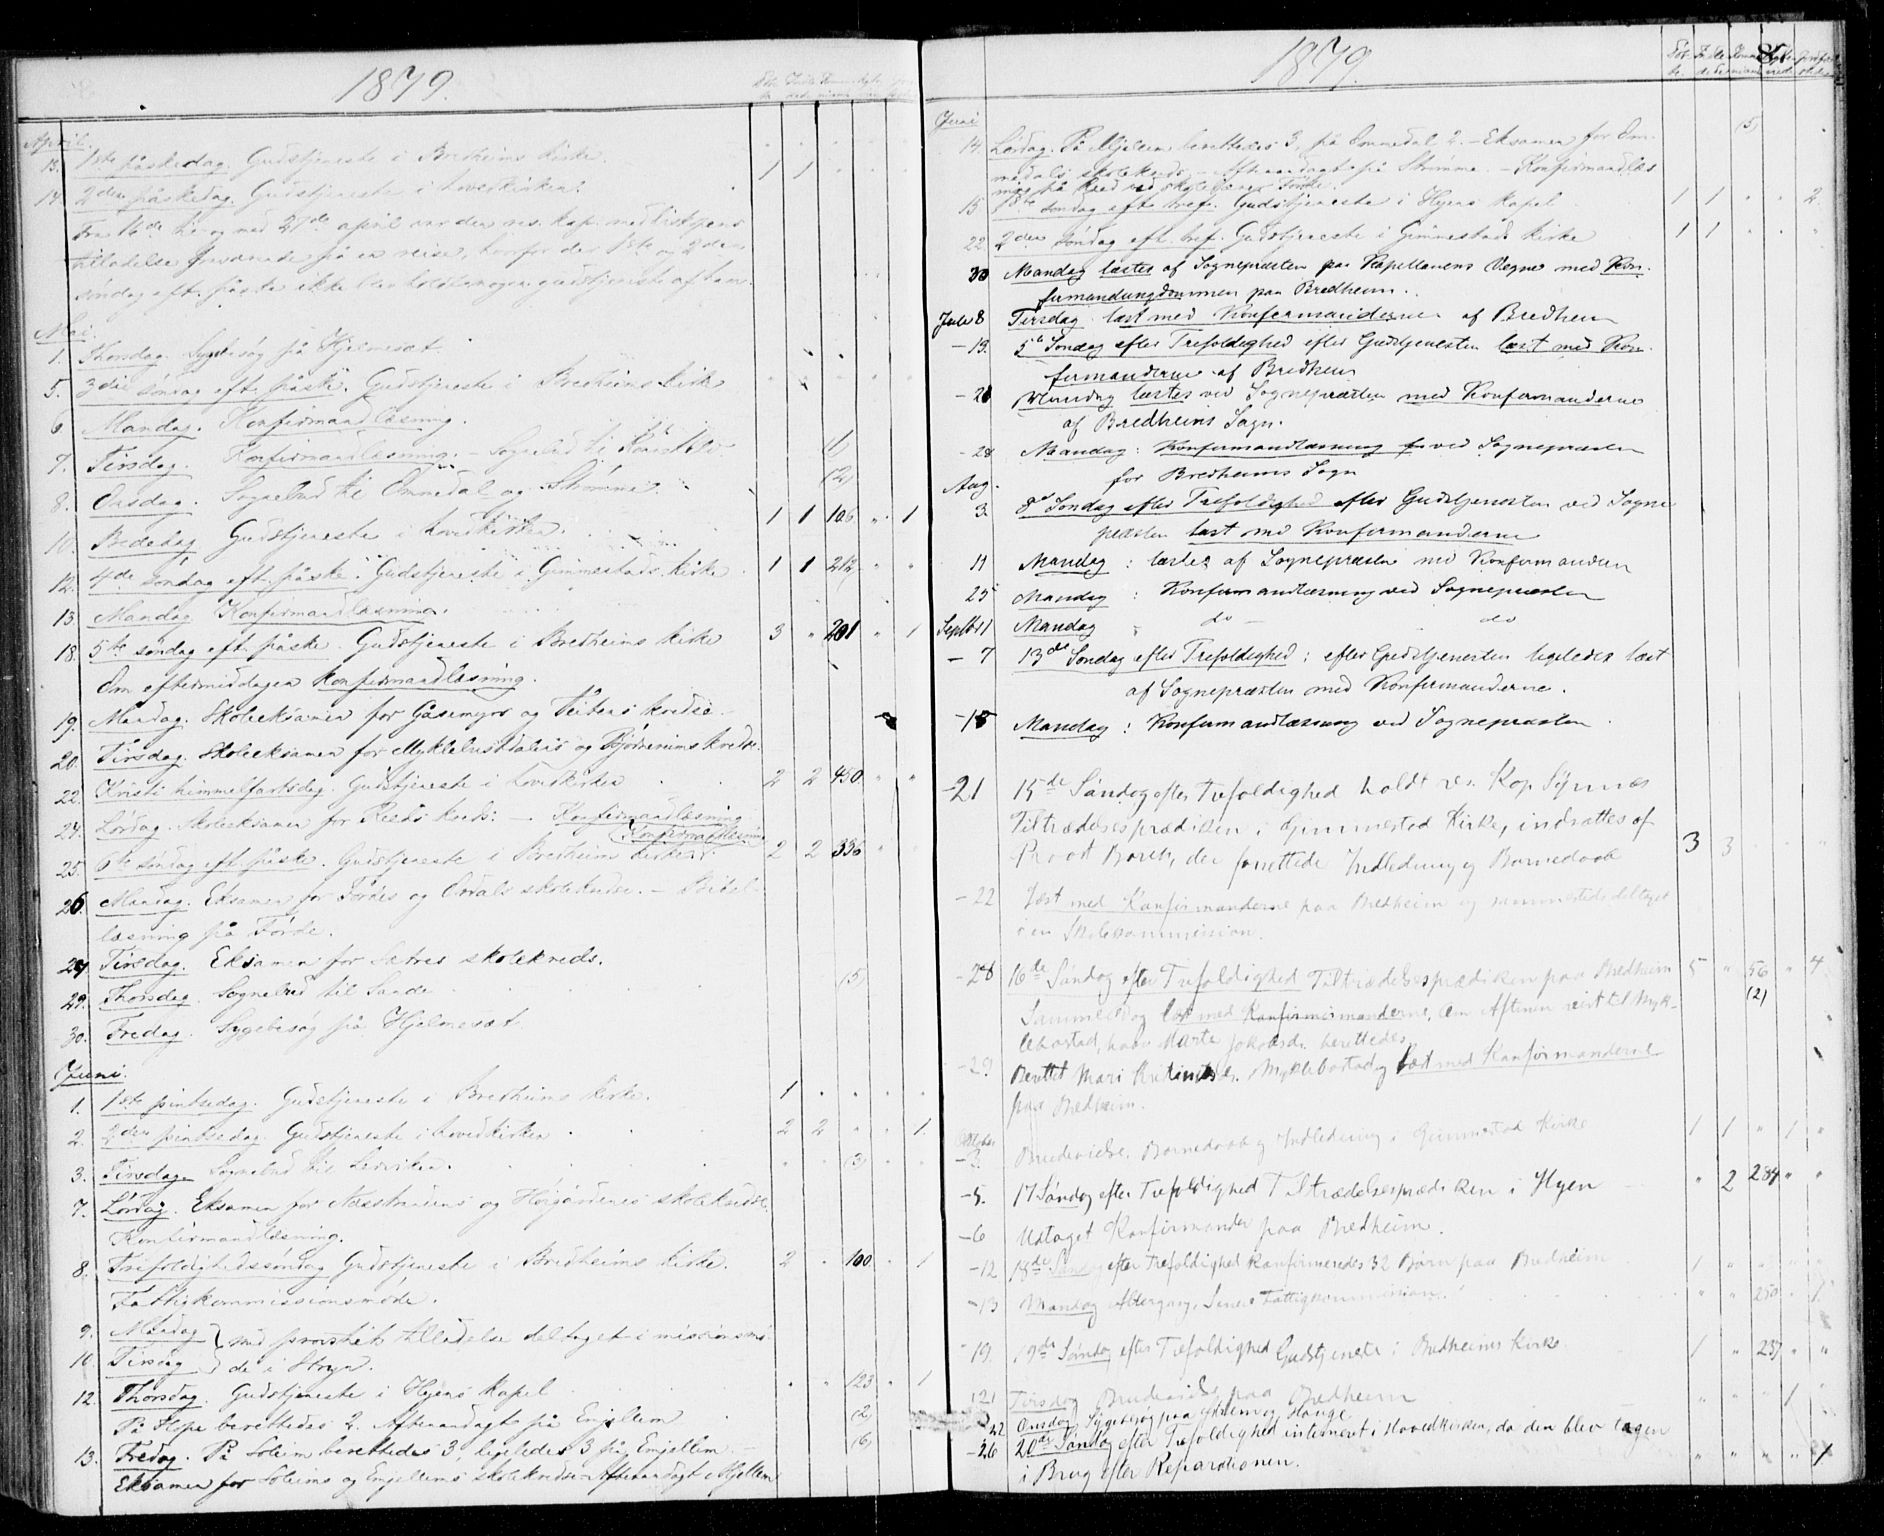 1879.
April.
13. 1ste påskedag. Gudstjeneste i Bredheims kirke. 1 1
14. 2den påskedag. Gudstjeneste i hovedkirken.
Fra 16de til og med 28de april var den res. kap. med
tilladelse fraværende på en reise, hvorfor der 1ste og 2den
søndag eft. påske ikke blev holdt nogen gudstjeneste af ham.
Mai.
1. Thorsdag. Sygebesøg på Hjelmeset
5. 3die søndag eft. påske. Gudstjeneste i Bredheims kirke
6. Mandag. Konfirmandlæsning.
7. Tirsdag. Konfirmandlæsning. – Sognebud til (1)
8. Onsdag. Sognebud til Ommedal og Strømme. (2)
10. Bededag Gudstjeneste i hovedkirken. 1 1 106 " 1
12. 4de søndag eft. påske. Gudstjeneste i Gimmestads kirke. 1 1 212 " "
13. Mandag Konfirmandlæsning.
18. 5te søndag eft. påske. Gudstjeneste i Bredheims kirke 3 " 201 " 1
Om eftermiddagen konfirmandlæsning.
19. Mandag. Skoleeksamen for Gåsemyrs og kredse.
20. Tirsdag. Skoleeksamen for Myklebustdalens og Bjørnerims kredse.
22. Kristi himmelfartsdag. Gudstjeneste i hovedkirken 2 2 450 " "
24. Lørdag. Skoleeksamen for Reeds kreds. – Konfirmandlæsning
Konfirmandlæsning
25. 6te søndag eft. påske. Gudstjeneste i Bredheims kirke. 2 2 336
26. Mandag. Eksamen for Førdes og skolekredse. – Bibel-
læsning på Førde.
27. Tirsdag. Eksamen for Sætres skolekreds.
29. Thorsdag. Sognebud til Sande (5)
30. Fredag. Sygebesøg på Hjelmeset
Juni.
1. 1ste pintsedag. Gudstjeneste i Bredheims kirke. 1
2. 2den pintsedag. Gudstjeneste i hovedkirken 2 2 " " 1
3. Tirsdag Sognebud til (3)
7. Lørdag. Eksamen for og skolekredse.
Konfirmandlæsning.
8. Trefoldighedssøndag Gudstjeneste i Bredheims kirke. 2 " 100 " 1
Fattigkommissionsmøde.
9. Mandag } med provstiets tilladelse deltaget i missionsmø-
10. Tirsdag } de i Stryn.
12. Thorsdag. Gudstjeneste i Hyens kapel " " 123 " 1
På Hope berettedes 2. Aftenandagt på Emjellem (2)
13. Fredag. På Soleim berettedes 3, ligeledes 3 på Emjellem. (6)
Eksamen for Soleims og Emjellems skolekredse. Aftenandagt i Mjellem
1879.
Juni
14. Lørdag. På Mjellem berettedes 3, på Ommedal 2. – Eksamen for Om- (5)
medals skolekreds. – Aftenandagt på Strømme. – Konfirmandlæs
ning på Reed ved skolelærer Førde.
15 1ste søndag eft. tref. Gudstjeneste i Hyens kapel 1 1 " " 2.
22 2den søndag eft. tref. Gudstjeneste i Gimmestads kirke 1 1 " " "
30 Mandag læstes af Sognepræsten paa Kapellanens Vegne med Kon-
firmandungdommen paa Bredheim.
Juli 8 Tirsdag læst med Konfermanderne af Bredheim
– 13. 5te Søndag efter Trefoldighed efter Gudstjenesten læst med Kon-
firmanderne af Bredheim
– 21 Mandag læstes ved Sognepræsten med Konfermanderne
af Bredheims Sogn.
– 28 Mandag: Konfermandlæsning ved Sognepræsten
for Bredheims Sogn
Aug.
3. 8de Søndag efter Trefoldighed efter Gudstjenesten ved Sogne
præsten læst med Konfermanderne
11 Mandag: læstes af Sognepræsten med Konfermanderne
25 Mandag: Konfermandlæsning ved Sognepræsten
Septbr 1 Mandag : do – do
– 7 13de Søndag efter Trefoldighed: efter Gudstjenesten ligeledes læst
af Sognepræsten med Konfermanderne.
– 15 Mandag: Konfermandlæsning ved Sognepræsten.
– 21 15de Søndag efter Trefoldighed holdt res. Kap Synnes
Tiltrædelsesprædiken i Gimmestad Kirke, indsattes af
Provst, der forrettede Indledning og Barnedaab 3 3
– 22 Læst med Konfirmanderne paa Bredheim og sammesteds deltaget
i en Skolekommission.
– 28 16de Søndag efter Trefoldighed Tiltrædelsesprædiken paa Bredheim 5 " 56 " 4
Sammedag læst med Konfirmanderne, om Aftenen reist til Myk- (2)
lebostad, hvor Marte Jakobsdr. berettedes.
– 29 Berettet Mari Myklebostad og læst med Konfirmanderne
paa Bredheim.
Oktober
– 3. Brudevielse, Barnedaab og Indledning i Gimmestad Kirke 1 1 " 1 "
– 5. 17 Søndag efter Trefoldighed Tiltrædelsesprædiken i Hyen " 2 284 " "
– 6 Udtaget Konfirmander paa Bredheim.
– 12 18de Søndag efter Trefoldighed Konfirmeredes 32 Børn paa Bredheim 1 " " " "
– 13 Mandag Altergang. Senere Fattigkommission. " " 250 " 1
– 19. 19de Søndag efter Trefoldighed Gudstjeneste i Bredheims Kirke 1 " 237 " "
– 21 Tirsdag Brudevielse paa Bredheim " " " 1 "
– 22 Onsdag Sygebesøg paa og Hauge
– 26 20de Søndag efter Trefoldighed interneret i Hovedkirken, da den blev tagen
i Brug efter Reparationen. " " " " 1